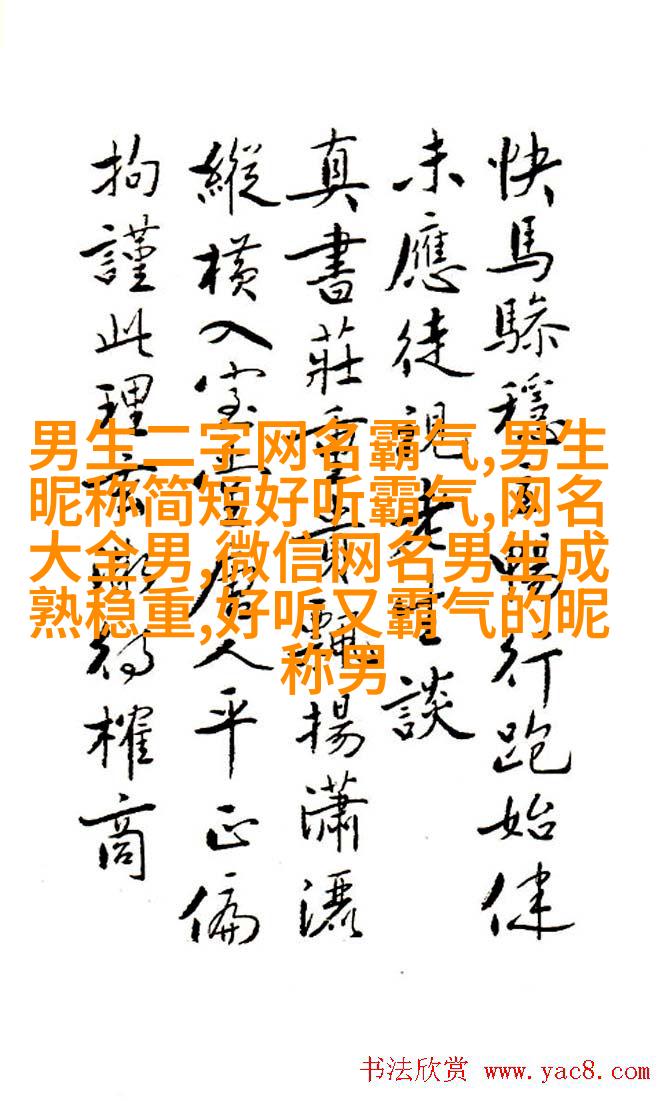 快馬驂穩暢行跑始
未應徒視老生談
真書莊重揚瀟灑
縱橫入室唐人平正偏
拘謹此理得榷商
男生二字网名霸气,男生
昵称简短好听霸气,网名
大全男,微信网名男生成
熟稳重,好听又霸气的昵
称男
书法欣赏 www.yac8.com